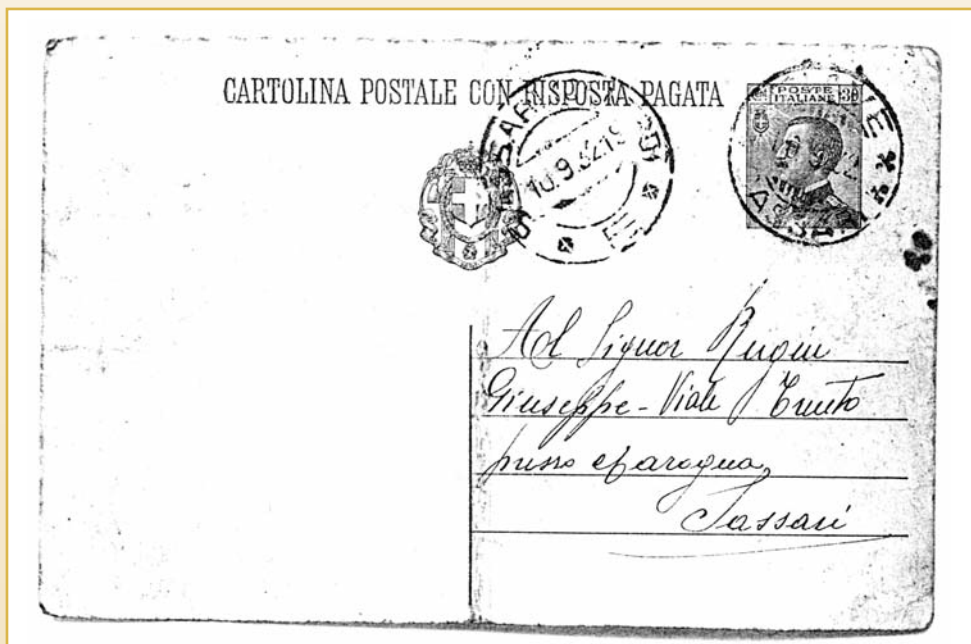 CARTOLINA POSTALE CON RISPOSTA PAGATA
POSTE
ITALIANE
30
10.9.32.19
Al Signor
Giuseppe - Viale Trento
presso
Sassari